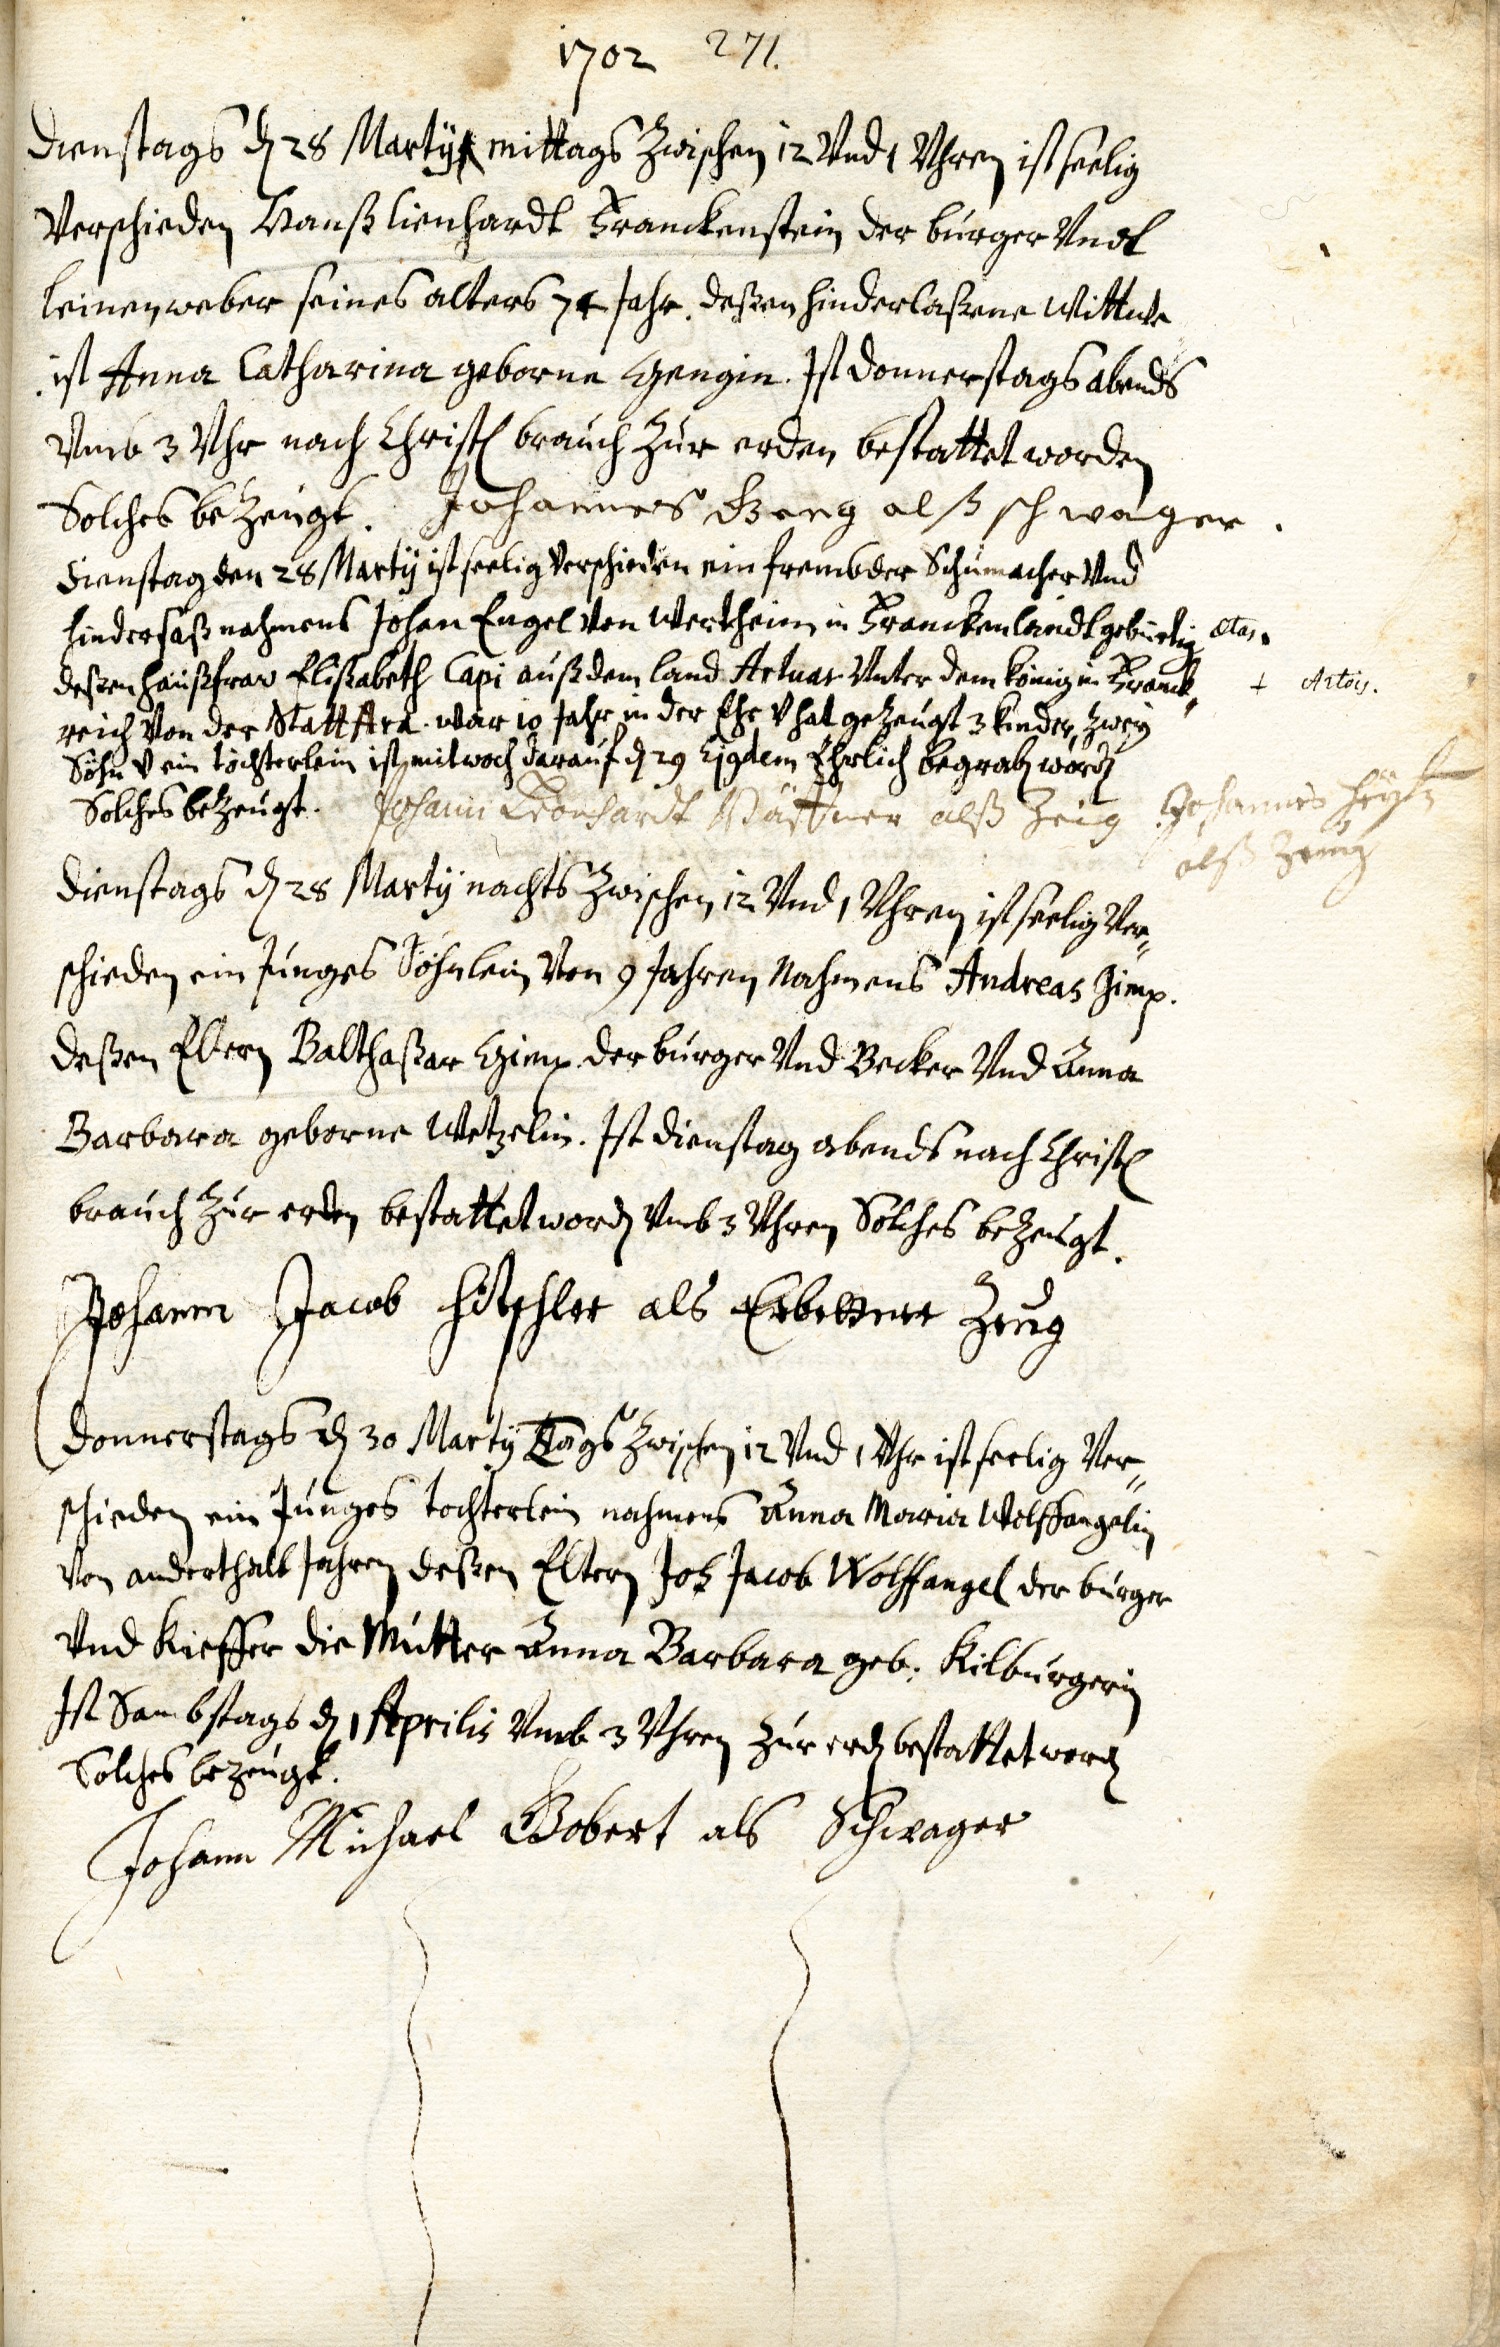 1702 271.
Dienstags dn 28 Martij mittags zwischen 12 Vnd 1 Vhren ist seelig
Verschieden Hanß Lienhardt Franckenstein der bürger Vndt
leinenweber seines alters 74 Jahr. deßen hinderlaßene Wittwe
ist Anna Catharina geborne Gengin. Ist donnerstags abends
Vmb 3 Vhr nach Christl brauch zur erden bestattet worden
Solches bezeügt. Johannes Geng alß schwager.
Dienstag den 28 Martij ist seelig Verschieden ein frembder Schümacher Vnd
hindersaß nahmens Johan Engel von Wertheim in Franckenlandt gebürtig
deßen haußfraw Elisabeth Capi auß dem land Artuas Vnter dem könig in Franck-
+ Artois.
reich Von der Statt Ara. war 10 Jahr in der Ehe V hat gezeugt 3 kinder, zwey
Söhn V ein töchterlein ist mitwoch darauf dn 29 Ejusdem Ehrlich begrabn wordn
Solches bezeügt. Johann Leonhardt alß Zeüg Johannes
alß Zeüg
Dienstags dn 28 Martij nachts zwischen 12 Vnd 1 Vhren ist seelig Ver-
schieden ein Junges Söhnlein Von 9 Jahren Nahmens Andreas Gimp.
deßen Eltern Balthaßar Gimp der bürger Vnd Becker Vnd Anna
Barbara geborne Wetzelin. Ist dienstag abends nach Christl
brauch zur erden bestattet wordn Vmb 3 Vhren Solches bezeügt.
Johann Jacob Hitschler als Erbettner Zeug
Donnerstags dn 30 Martij Tags zwischen 12 Vnd 1 Vhr ist seelig Ver-
schieden ein Junges tochterlein nahmens Anna Maria Wolffangelin
Von anderthalb Jahren deßen Eltern Joh Jacob Wolffangel der bürger
Vnd Kieffer die Mutter Anna Barbara geb: Kilbürgerin
Ist Sambstags dn 1 Aprilis Vmb 3 Vhren zur erdn bestattet wordn
Solches bezeügt.
Johann Michael Gobert als Schwager